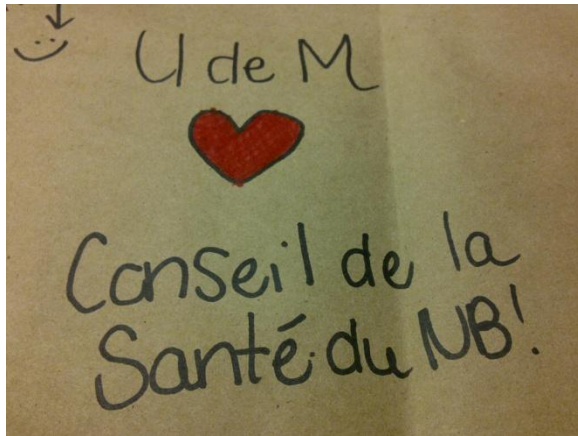 U de M
Conseil de la
Santé du NB!